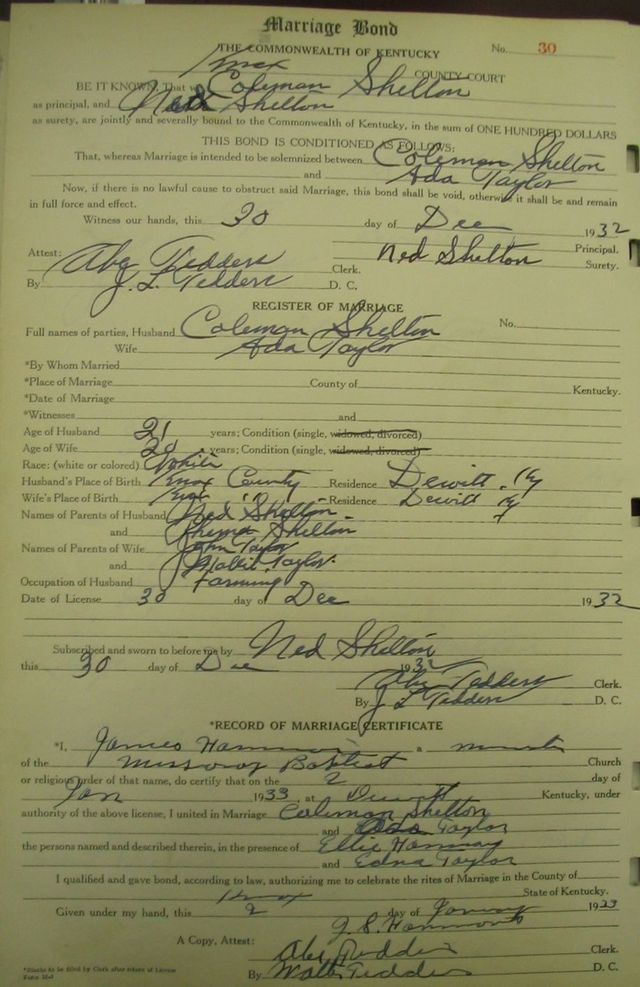 Marriage Bond
THE COMMONWEALTH OF KENTUCKY No. 30
Knox COUNTY COURT
BE IT KNOWN, That we Coleman Shelton
as principal, and Ned Shelton
as surety, are jointly and severally bound to the Commonwealth of Kentucky, in the sum of ONE HUNDRED DOLLARS
THIS BOND IS CONDITIONED AS FOLLOWS:
That, whereas Marriage is intended to be solemnized between Coleman Shelton
and Ada Taylor
Now, if there is no lawful cause to obstruct said Marriage, this bond shall be void, otherwise it shall be and remain
in full force and effect.
Witness our hands, this 30 day of Dec 1932
Principal.
Attest: Abe Tedders Clerk. Ned Shelton Surety.
By J. L. Tedders D. C.
REGISTER OF MARRIAGE
Full names of parties, Husband Coleman Shelton No.
Wife Ada Taylor
*By Whom Married
*Place of Marriage County of Kentucky.
*Date of Marriage
*Witnesses and
Age of Husband 21 years; Condition (single, widowed, divorced)
Age of Wife 20 years; Condition (single, widowed, divorced)
Race: (white or colored) White
Husband's Place of Birth Knox County Residence Dewitt Ky
Wife's Place of Birth Knox " Residence Dewitt Ky
Names of Parents of Husband Ned Shelton
and Shelton
Names of Parents of Wife John Taylor
and Taylor
Occupation of Husband Farming
Date of License 30 day of Dec 1932
Subscribed and sworn to before me by Ned Shelton
this 30 day of Dec 1932
Abe Tedders Clerk.
By J L Tedders D. C.
*RECORD OF MARRIAGE CERTIFICATE
*I, James a
of the Baptist Church
or religious order of that name, do certify that on the 2 day of
Jan 1933, at Dewitt Kentucky, under
authority of the above license, I united in Marriage Coleman Shelton
and Ada Taylor
the persons named and described therein, in the presence of
and Edna Taylor
I qualified and gave bond, according to law, authorizing me to celebrate the rites of Marriage in the County of
Knox State of Kentucky.
Given under my hand, this 2 day of 1933
J. S.
A Copy, Attest: Abe Tedders Clerk.
By Tedders D. C.
*Blanks to be filled by Clerk after return of License